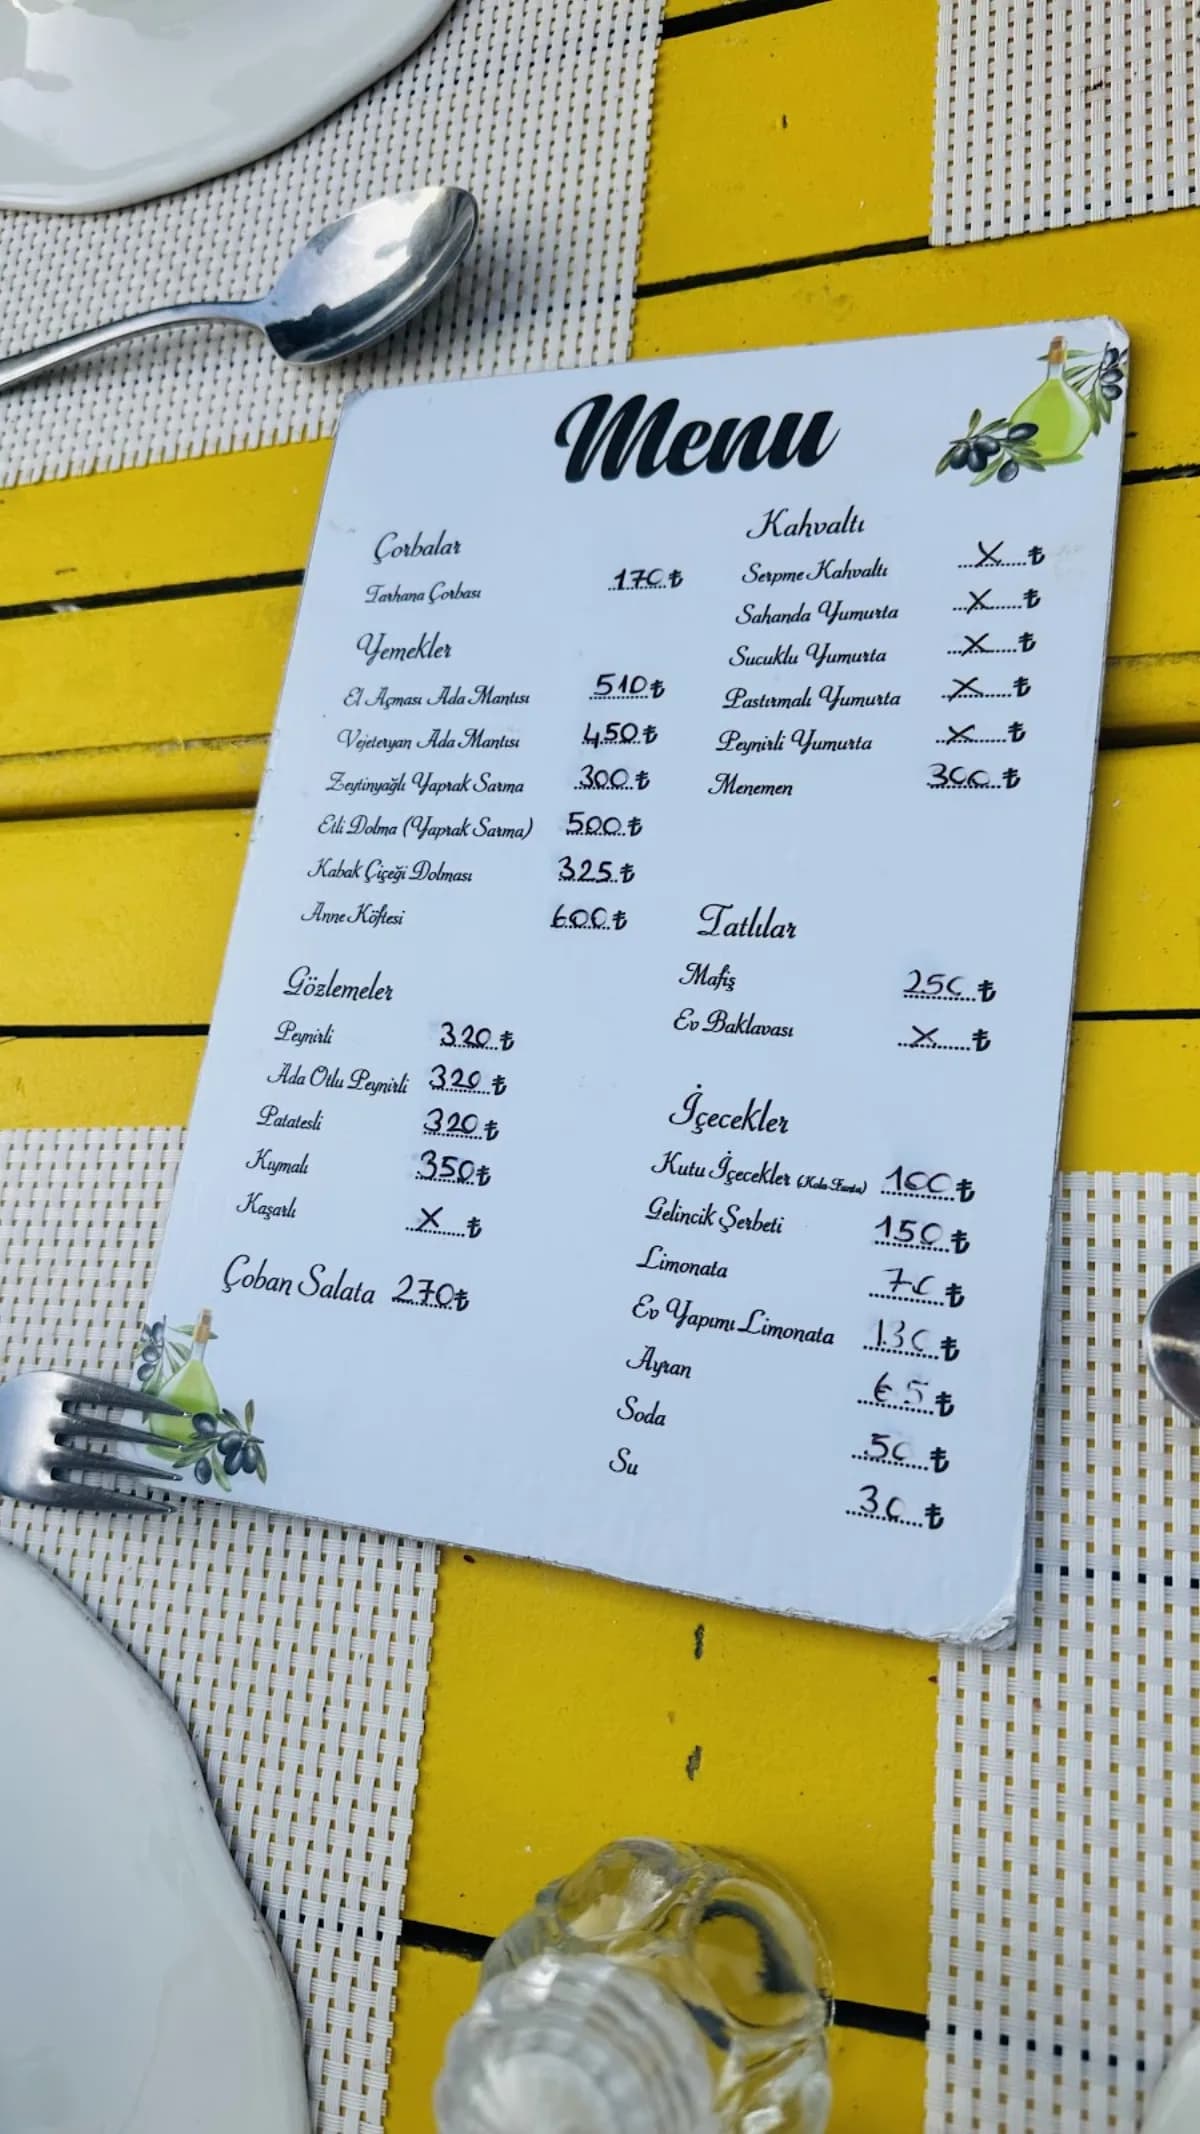 Menu
Çorbalar
Tarhana Çorbası 170 ₺
Yemekler
El Açması Ada Mantısı 510 ₺
Vejeteryan Ada Mantısı 450 ₺
Zeytinyağlı Yaprak Sarma 300 ₺
Etli Dolma (Yaprak Sarma) 500 ₺
Kabak Çiçeği Dolması 325 ₺
Anne Köftesi 600 ₺
Gözlemeler
Peynirli 320 ₺
Ada Otlu Peynirli 320 ₺
Patatesli 320 ₺
Kıymalı 350 ₺
Kaşarlı X ₺
Çoban Salata 270 ₺
Kahvaltı
Serpme Kahvaltı X ₺
Sahanda Yumurta X ₺
Sucuklu Yumurta X ₺
Pastırmalı Yumurta X ₺
Peynirli Yumurta X ₺
Menemen 300 ₺
Tatlılar
Mafiş 250 ₺
Ev Baklavası X ₺
İçecekler
Kutu İçecekler (Kola-Fanta) 100 ₺
Gelincik Şerbeti 150 ₺
Limonata 70 ₺
Ev Yapımı Limonata 130 ₺
Ayran 65 ₺
Soda 50 ₺
Su 30 ₺